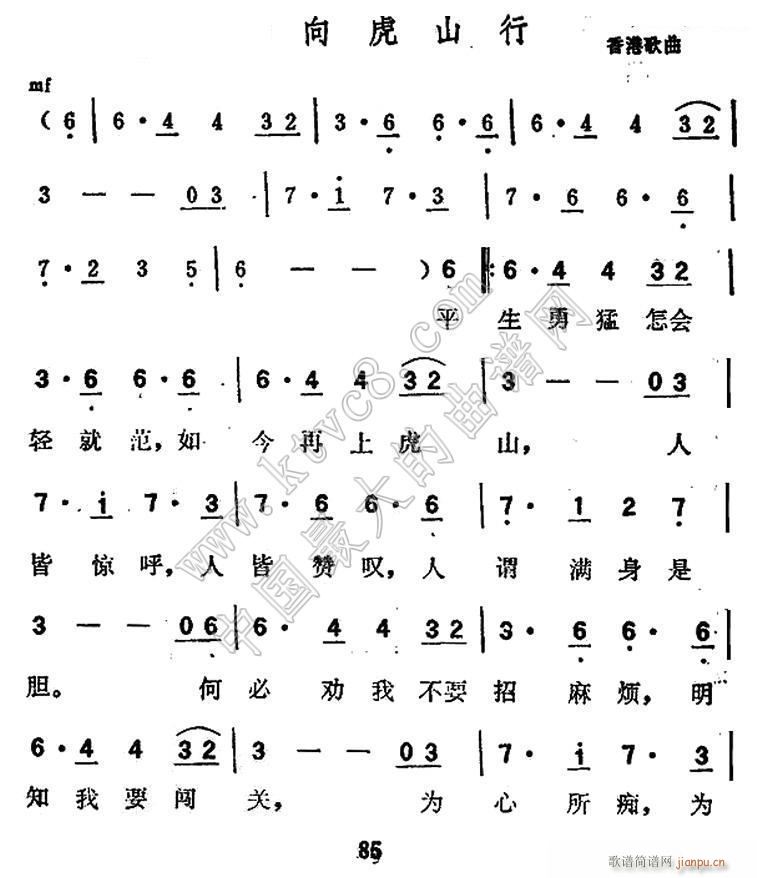 向虎山行
香港歌曲
mf
( 6 | 6 · 4 4 3 2 | 3 · 6 6 · 6 | 6 · 4 4 3 2 |
3 — — 0 3 | 7 · i 7 · 3 | 7 · 6 6 · 6 |
7 · 2 3 5 | 6 — — ) 6 ‖: 6 · 4 4 3 2 |
平 生勇猛怎会
3 · 6 6 · 6 | 6 · 4 4 3 2 | 3 — — 0 3 |
轻就范,如 今再上虎 山, 人
7 · i 7 · 3 | 7 · 6 6 · 6 | 7 · 1 2 7 |
皆惊呼,人皆赞叹,人 谓 满身是
3 — — 0 6 | 6 · 4 4 3 2 | 3 · 6 6 · 6 |
胆。 何必 劝我不要招 麻烦,明
6 · 4 4 3 2 | 3 — — 0 3 | 7 · i 7 · 3 |
知我要闯 关, 为心所痴,为
85
www.ktvc8.com
中国最大的曲谱网
歌谱简谱网 jianpu.cn